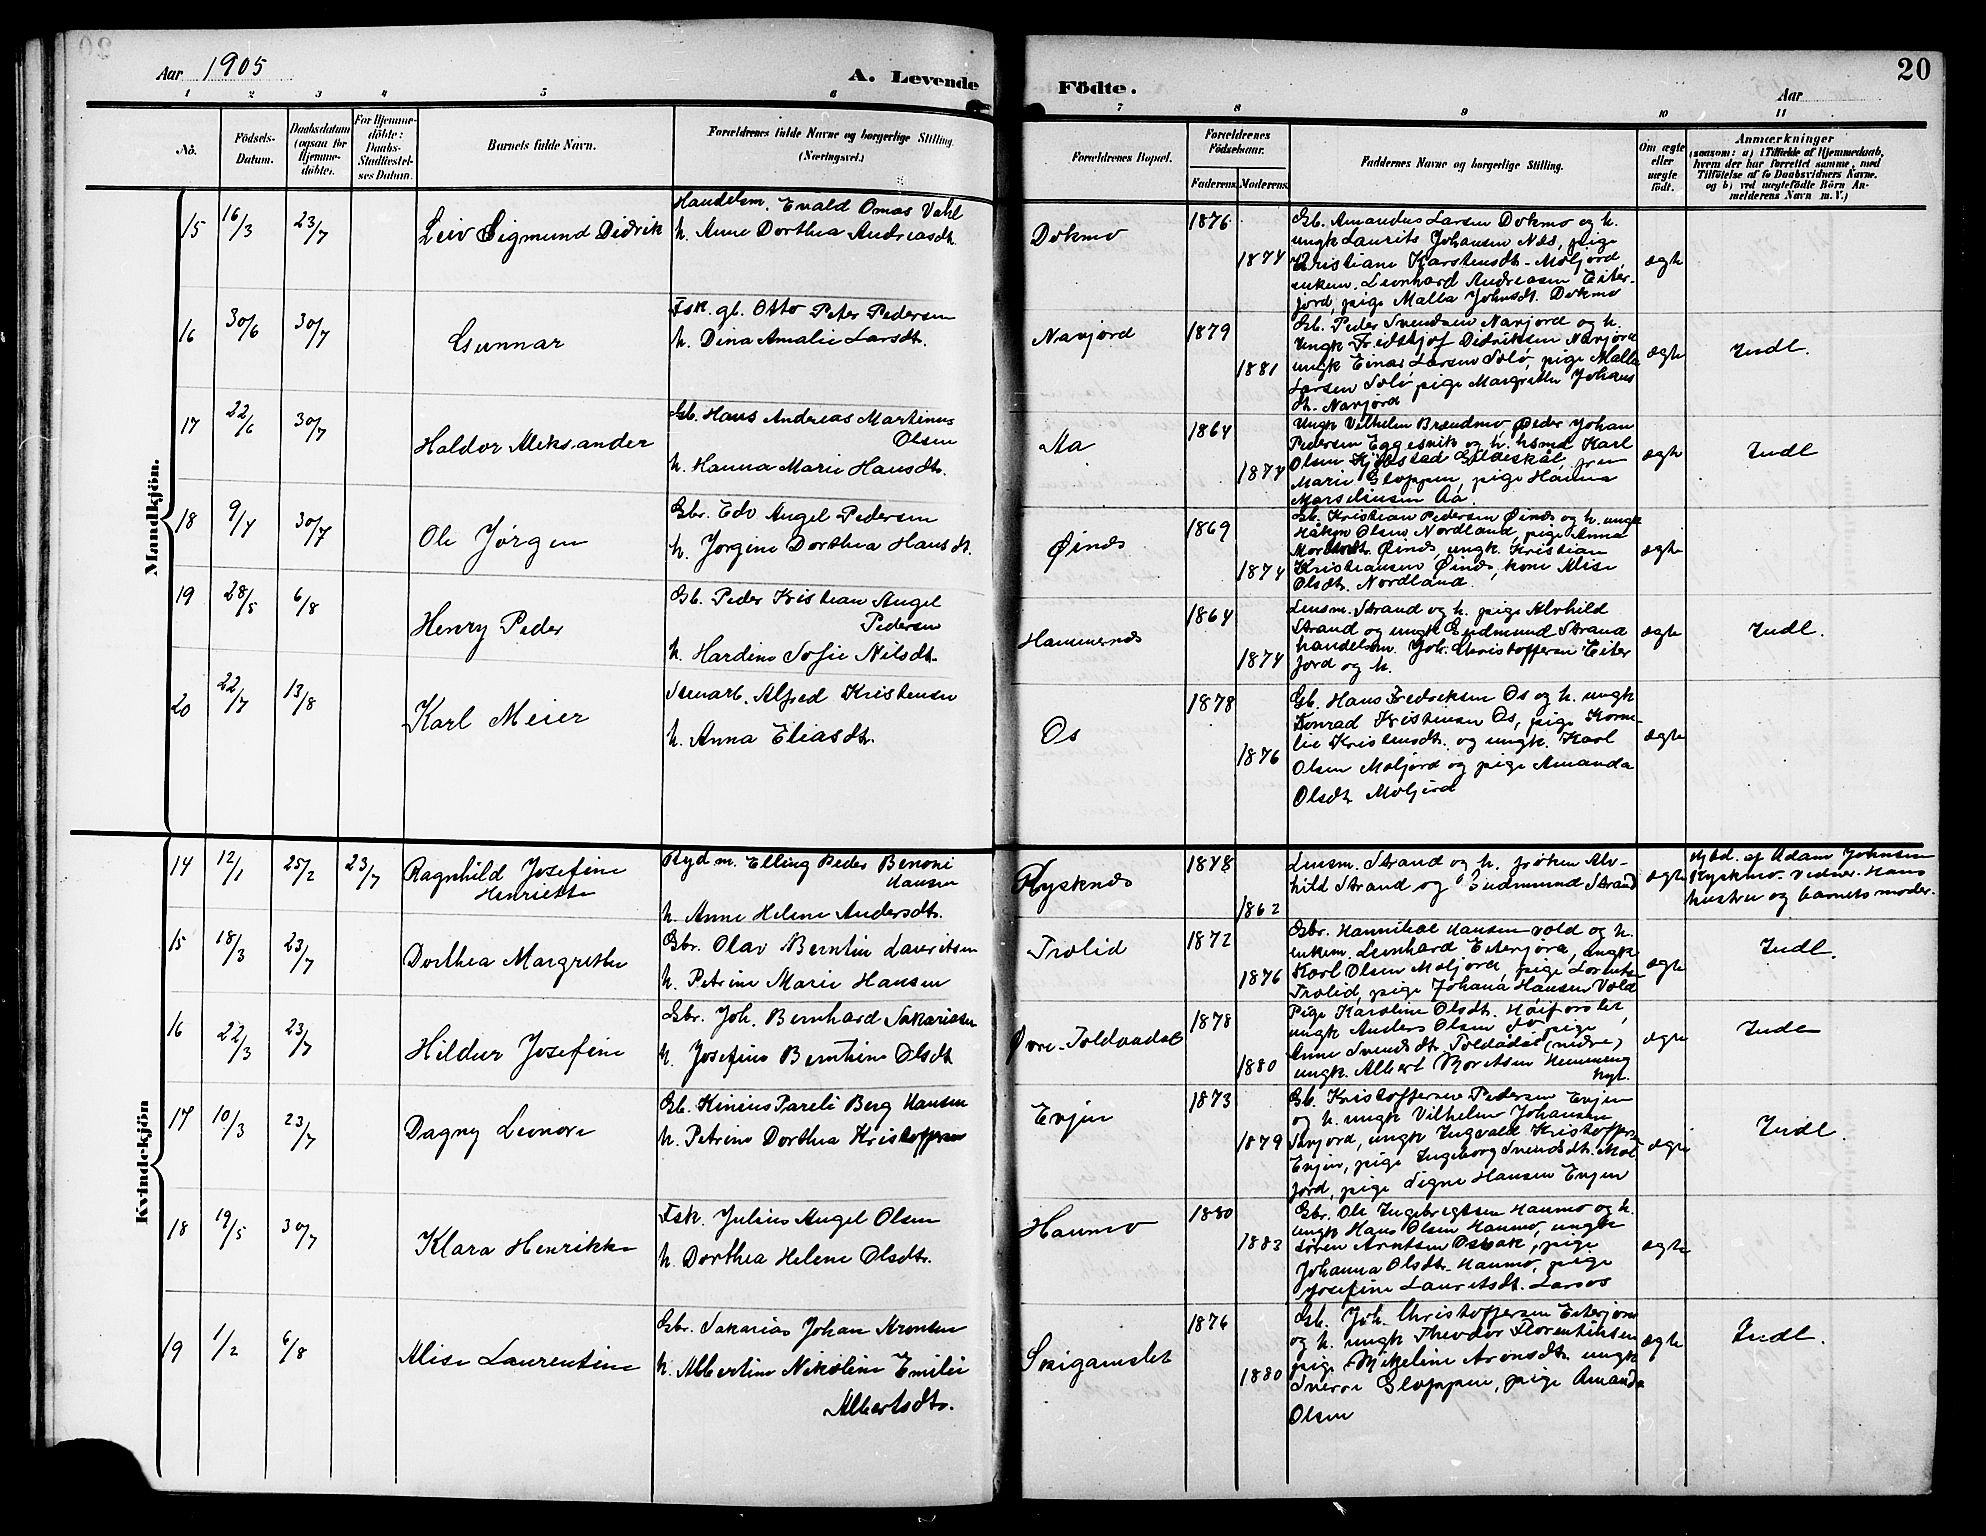 Aar 1905
A. Levende Födte.
20
Aar
1 2 3 4 5 6 7 8 9 10 11
No.
Födsels-Datum.
Daabsdatum (ogsaa for Hjemmedöbte).
For Hjemmedöbte: Daabs-Stadfæstelses Datum.
Barnets fulde Navn.
Forældrenes fulde Navne og borgerlige Stilling. (Næringsvei.)
Forældrenes Bopæl.
Forældrenes Födselsaar.
Faderens. Moderens.
Faddernes Navne og borgerlige Stilling.
Om ægte eller uægte født.
Anmærkninger
(saasom: a) i Tilfælde af Hjemmedaab, hvem der har forrettet samme, med Tilføielse af to Daabsvidners Navne. og b) ved uægtefödte Börn Anmelderens Navn m. V.)
Mandkjön.
15 16/3 23/7 Leiv Sigmund Didrik
Handelsm. Evald Omas Dahl
h. Anne Dorthea Andreasdt.
Dokmo 1876 1874
Gb. Amandus Larsen Dokmo og h.
ungk Laurits Johansen Næs, pige
Kristiane Karstensdt. Moljord,
enkem. Leonhard Andreasen Eiter-
jord, pige Malla Johnsdt. Dokmo
ægte
16 30/6 30/7 Gunnar
Fsk. gl. Otto Peter Pedersen
h. Dina Amalie Larsdt.
Navjord 1879 1881
Gb. Peder Svendsen Navjord og h.
Ungk Fridthjof Didriksen Navjord
ungk Einar Larsen Solö, pige Malla
Larsen Solö pige Margrethe Johans
dt. Navjord
ægte Indl.
17 22/6 30/7 Haldor Aleksander
Gb. Hans Andreas Martinus
Olsen
h. Hanna Marie Hansdt.
Aa 1864 1874
Ungk Vilhelm Brændmo, Peder Johan
Pedersen Eggesvik og h. hsmd Karl
Olsen Kjelstad Gildeskål, fru
Marie Gloppen, pige Hanna
Marseliusen Aa
ægte Indl
18 9/7 30/7 Ole Jørgen
Gbr. Edv Angel Pedersen
h. Jorgine Dorthea Hansdt.
Øinæs 1869 1874
Gb. Kristian Pedersen Øinæs og h. ungk
Håkon Olsen Nordland, pige Anna
Øinæs, ungk. Kristian
Kristiansen Øinæs, kone Alise
Olsdt. Nordland.
ægte
19 28/5 6/8 Henry Peder
Gb. Peder Kristian Angel
Pedersen
h. Hardine Sofie Nilsdt.
Hammernæs 1864 1874
Lensm. Strand og h. pige Alvhild
Strand og ungk Gudmund Strand
handelsm. Joh. Christoffersen Eiter
jord og h.
ægte Indl.
20 22/7 13/8 Karl Meier
Stenarb. Alfred Kristensen
h. Anna Eliasdt.
Os 1878 1876
Gb. Hans Fredriksen Os og h. ungk
Konrad Kristensen Os, pige Korne-
lie Kristensdt. og ungk. Karl
Olsen Moljord og pige Amanda
Olsdt. Moljord
ægte
Kvindekjön
14 12/1 25/2 23/7 Ragnhild Josefine
Henriette
Rydm. Elling Peder Benoni
Hansen
h. Anne Helene Andersdt.
Rysknæs 1878 1862
Lensm. Strand og h. frøken Alv-
hild Strand og Gudmund Strand
ægte
Hjbd. af Adam Johnsen
Ryskmo. Vidner. Hans
hustru og barnets moder.
15 18/3 23/7 Dorthea Margrethe
Gbr. Olav Berntin Lauritsen
h. Petrine Marie Hansen
Trolid 1872 1876
Gbr. Hannibal Hansen Vold og h.
enkem. Leonhard Eiterjord, ungk
Karl Olsen Moljord, pige Lorentse
Trolid, pige Johana Hansen Vold
ægte Indl.
16 22/3 23/7 Hildur Josefine
Gbr. Joh. Bernhard Sakariasen
h. Josefine Berntine Olsdt
Øvre-Toldaadal 1878 1880
Pige Karoline Olsdt. Høiforslet,
ungk Anders Olsen do pige
Anne Svendsdt. Toldådal (nedre)
ungk. Albert Moritsen Hemmeng
hyt.
ægte Indl
17 10/3 23/7 Dagny Leonore
Gb. Kinius Pareli Berg Hansen
h. Petrine Dorthea Kristoffersen
Evjen 1873 1879
Gb. Kristoffersen Pedersen Evjen
og h. ungk Vilhelm Johansen
Navjord, ungk Ingvald Kristoffers.
Evjen, pige Ingeborg Svendsdt. Mol
jord, pige Signe Hansen Evjen
ægte Indl.
18 19/5 30/7 Klara Henrikke
Fsk. Julius Angel Olsen
h. Dorthea Helene Olsdt.
Haumo 1880 1883
Gbr. Ole Ingebregtsen Haumo og h.
ungk Hans Olsen Haumo, ungk
Søren Arntsen Osbak, pige
Johanna Olsdt. Haumo, pige
Josefine Lauritsdt. Larsos
ægte
19 1/2 6/8 Alise Laurentine
Gbr. Sakarias Johan Aronsen
h. Albertine Nikoline Emilie
Albertsdt.
Skigamslet 1876 1880
Gb. Joh. Christoffersen Eiterjord
og h. ungk Theodor Florentinsen
pige Mikeline Aronsdt. ungk
Sverre Gloppen, pige Amanda
Olsen
ægte Indl.